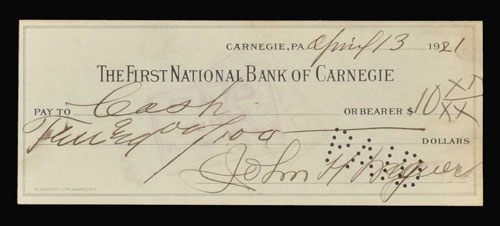 CARNEGIE, PA. April 13 1921
THE FIRST NATIONAL BANK OF CARNEGIE
PAY TO Cash OR BEARER $ 10 XX/XX
Ten & 00/100 DOLLARS
John H Wagner
PAID